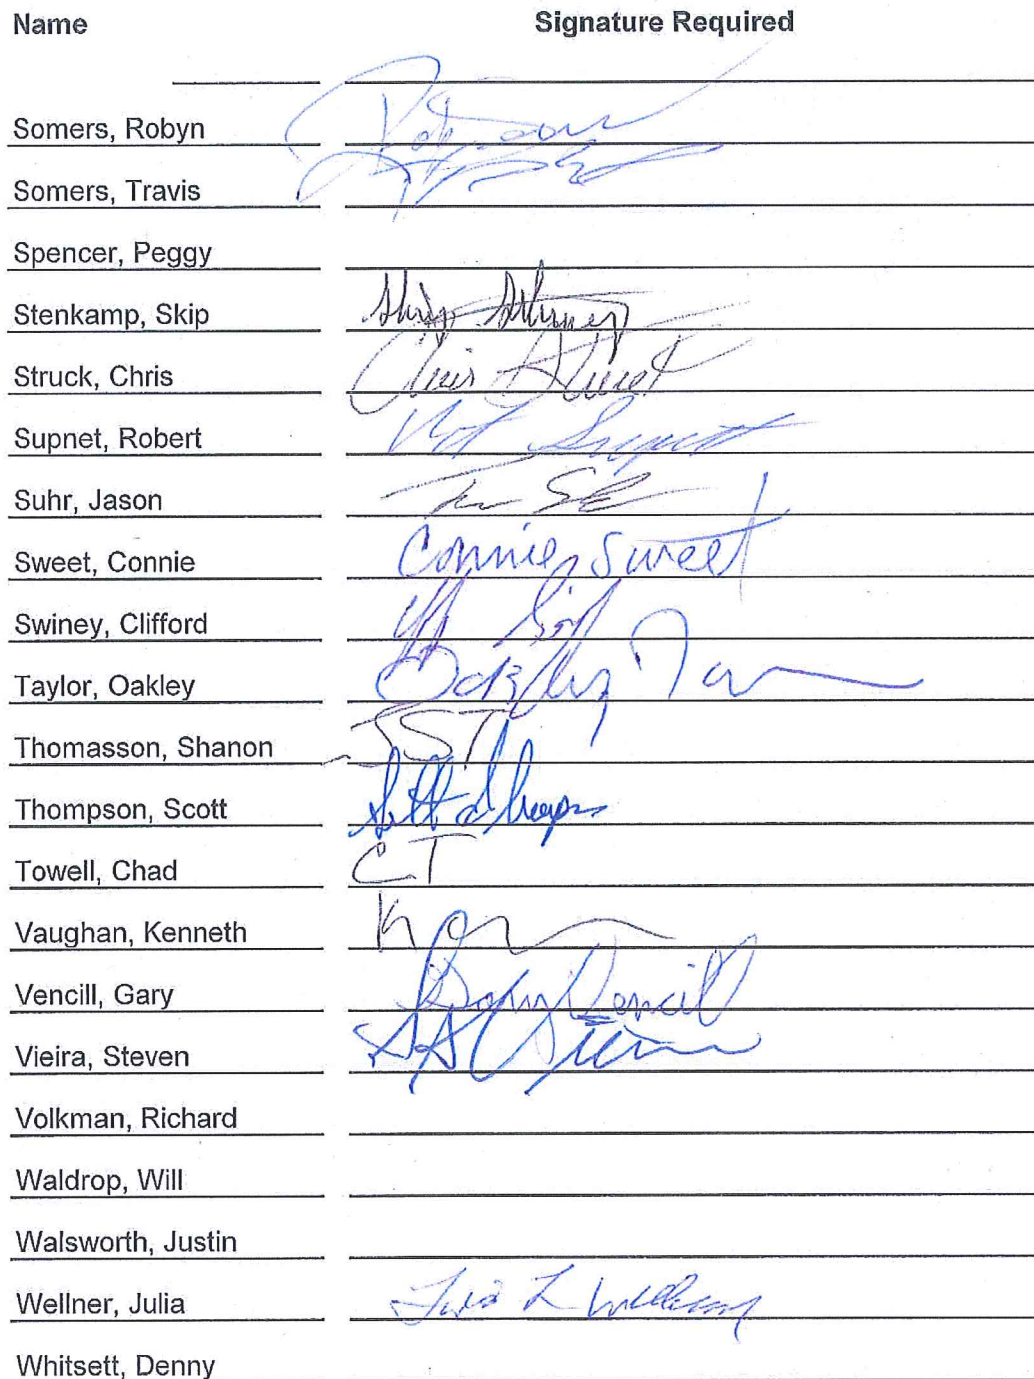 Name Signature Required
Somers, Robyn
Somers, Travis
Spencer, Peggy
Stenkamp, Skip
Struck, Chris Chris Struck
Supnet, Robert Supnet
Suhr, Jason
Sweet, Connie Connie Sweet
Swiney, Clifford
Taylor, Oakley Oakley
Thomasson, Shanon ST
Thompson, Scott
Towell, Chad CT
Vaughan, Kenneth
Vencill, Gary Gary Vencill
Vieira, Steven
Volkman, Richard
Waldrop, Will
Walsworth, Justin
Wellner, Julia
Whitsett, Denny